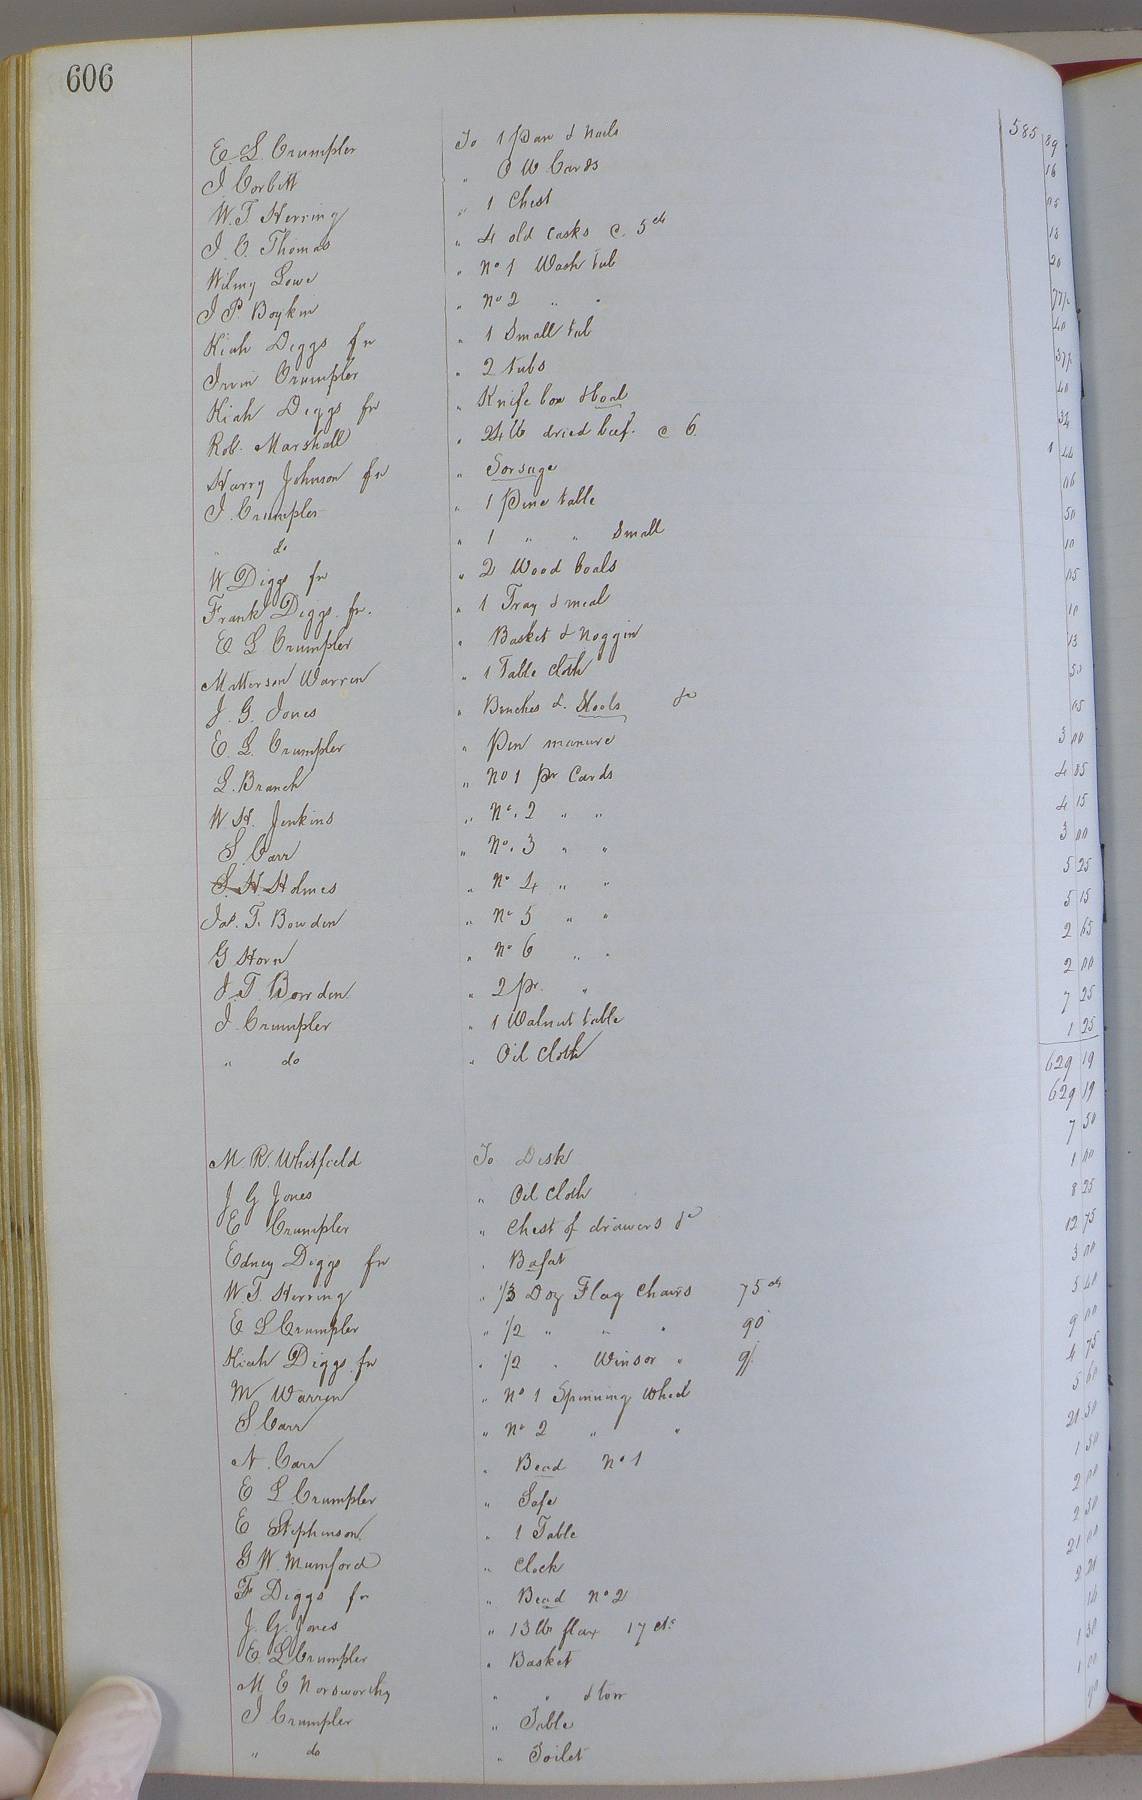 606
585 89
E. L. Crumpler To 1 Pan & Nails 16
J. Corbitt " O W Cards 05
W. T. Herring " 1 Chest 18
J. C. Thomas " 4 old casks c. 5 cts 20
Wilmy Lowe " No 1 Wash tub
J P. Boykin " No 2 " " 40
Kiah Diggs fn " 1 Small tub
Irvin Crumpler " 2 tubs 40
Kiah Diggs fn " Knife box & boal
Rob. Marshall " 24 lb dried beef. c 6. 1 44
Harry Johnson fn " Sorsage 06
J. Crumpler " 1 Pine table 50
" do " 1 " " Small 10
W Diggs fn " 2 Wood boals 05
Frank Diggs. fn. " 1 Tray & meal 10
E L Crumpler " Basket & Noggin 13
Matterson Warren " 1 Table cloth 50
J. G. Jones " Benches &. Stools &c 05
E. L. Crumpler " Pen manure 3 00
L. Branch " No 1 pr Cards 4 85
W. H. Jenkins " No. 2 " " 4 15
S. Carr " No. 3 " " 3 00
S. H Holmes " No 4 " " 5 25
Jas. T. Bowden " No 5 " " 5 15
G Horn " No 6 " " 2 65
J. T. Bowden " 2 pr. " 2 00
J. Crumpler " 1 Walnut table 7 25
" do " Oil Cloth 1 25
629 19
629 19
M. R. Whitfield To Desk 7 50
J G Jones " Oil cloth 1 00
E Crumpler " Chest of drawers &c 8 25
Edney Diggs fn " Bofat 12 75
W. T. Herring " 1/3 Doz Flag Chairs 75 cts 3 00
E L Crumpler " 1/2 " " " 90 5 40
Kiah Diggs. fn " 1/2 " Winsor " 9/. 9 00
M Warren " No 1 Spinning Wheel 4 75
S Carr " No 2 " " 5 60
N. Carr " Bead No 1 21 50
E L. Crumpler " Safe 1 50
E Stephenson " 1 Table 2 00
G W. Mumford " Clock 2 50
F Diggs fn " Bead No 2 21 00
J. G. Jones " 13 lb flax 17 cts 2 21
E. L Crumpler " Basket
M E Norsworthy " " & tow 1 50
J Crumpler " Table 1 00
" do " Toilet 90